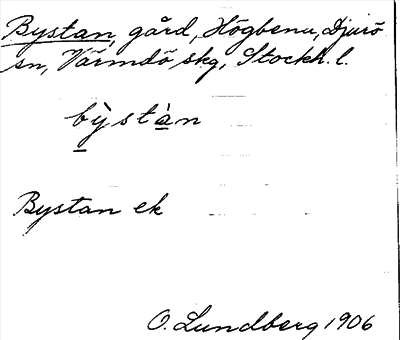 Bystan, gård, Högbenu, Djurö
sn, Värmdö skg, Stockh. l.
by̍stàn
Bystan ek
O. Lundberg 1906